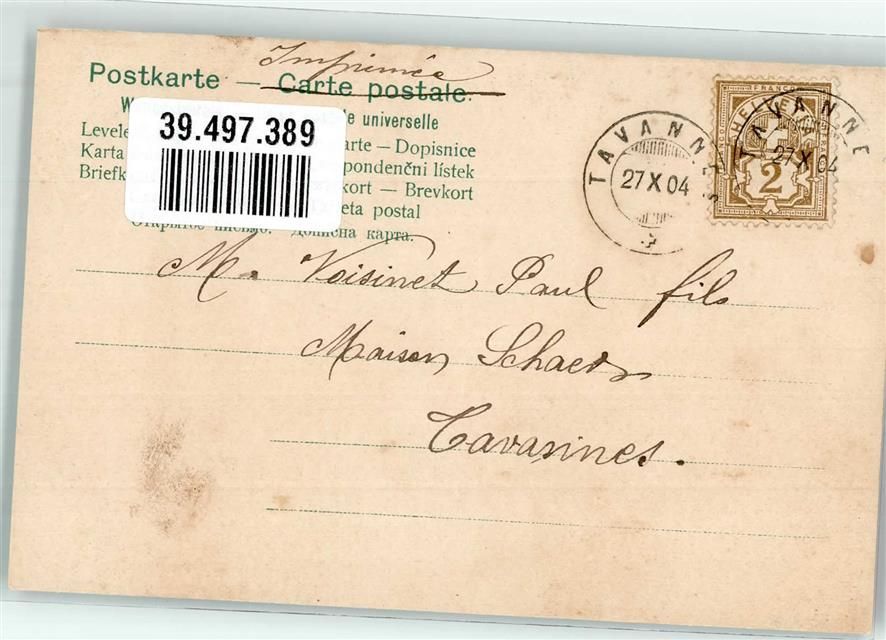 Imprimée
Postkarte — Carte postale.
39.497.389
le universelle
Levele
arte — Dopisnice
Karta
spondenční lístek
Briefk
kort — Brevkort
eta postal
Открытое письмо. Дописна карта.
FRANCO
HELVETIA
2
TAVANNES
27 X 04
TAVANNE
27 X 04
M. Voisinet Paul fils
Maison Schaer
Tavannes.